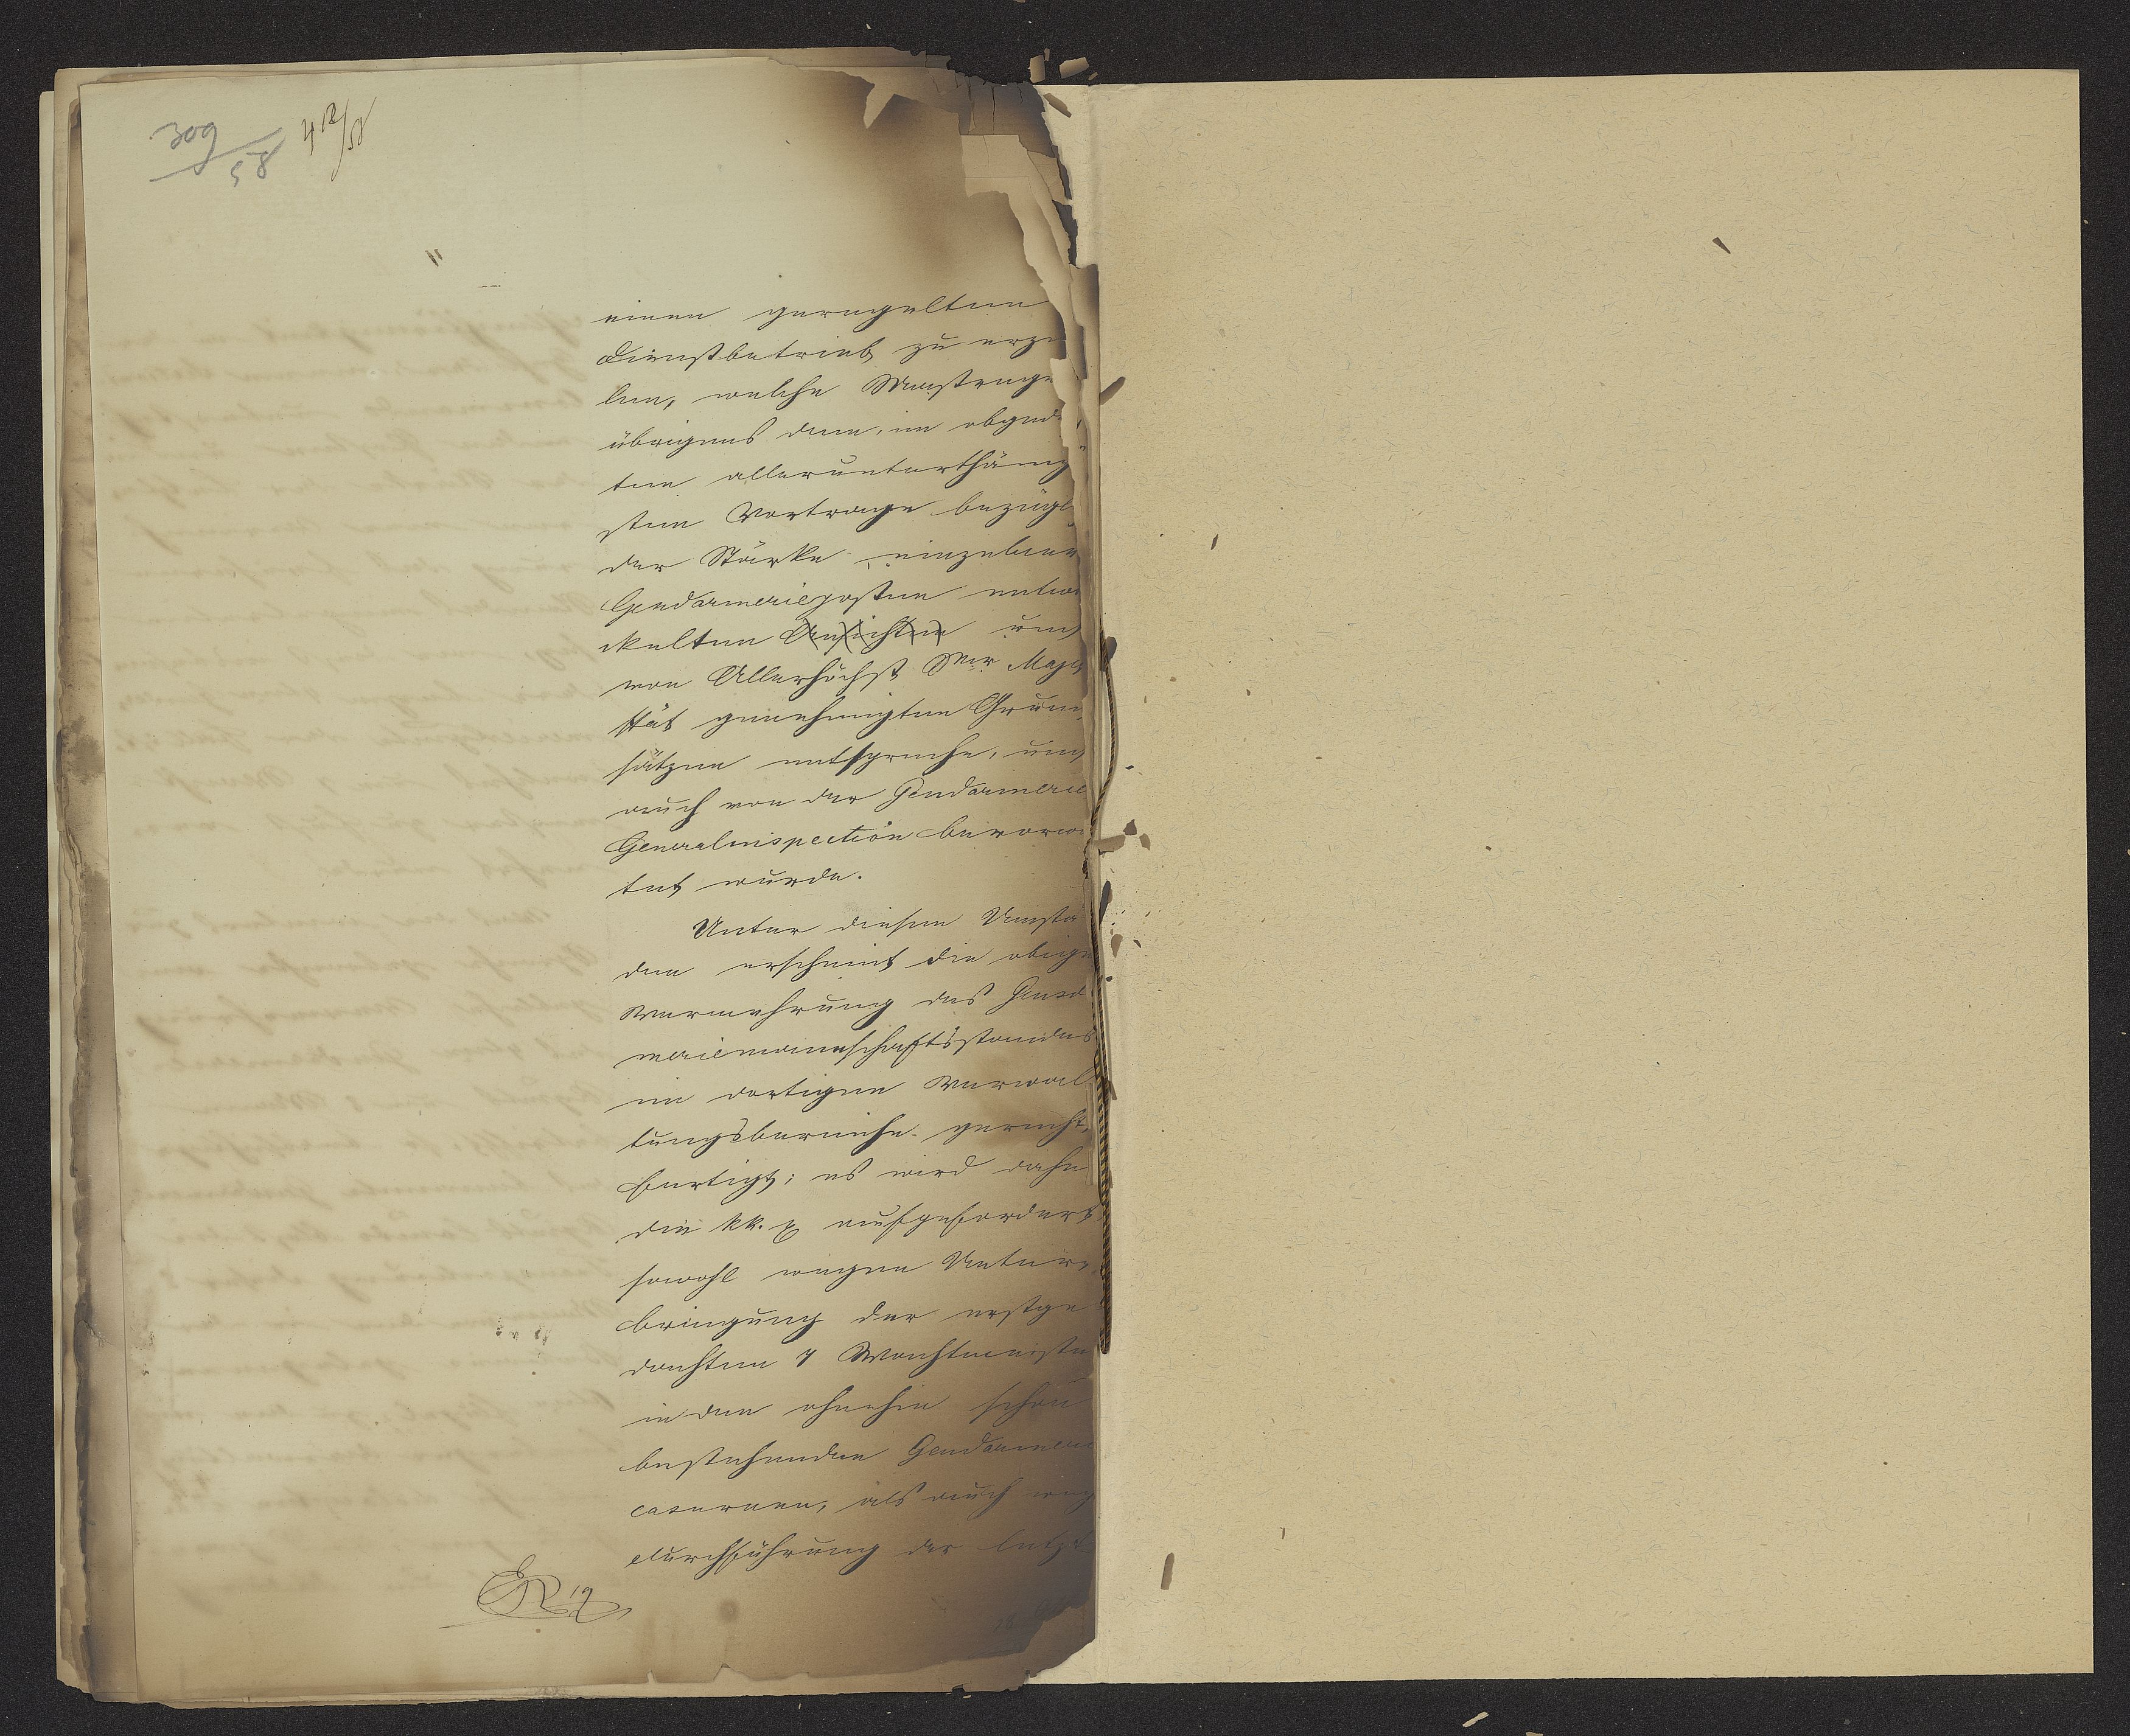 309/58 412/58
einen geregelten
Dienstbetrieb zu erzie
len, welche Massrege
übrigens den, im obgeda
ten allerunterthänig
sten Vortrage bezügl
der Stärke einzelner
Gendarmerieposten entwi
ckelten Ansichten und
von Allerhöchst Sr Maje
stät genehmigten Grund
sätzen entspreche, und
auch von der Gendarmerie
Generalinspection bevorwor
tet wurde.
Unter diesen Umstän
den erscheint die obige
Vermehrung des Gend
meriemannschaftsstandes
im dortigen Verwal
tungsbereiche gerecht,
fertigt; es wird daher
die kk. aufgefordert
sowohl wegen Unter,
bringung der erstge
dachten 7 Wachtmeister
in den ohnehin schon
bestehenden Gendarmerie
casernen, als auch weg
Durchführung der letzt